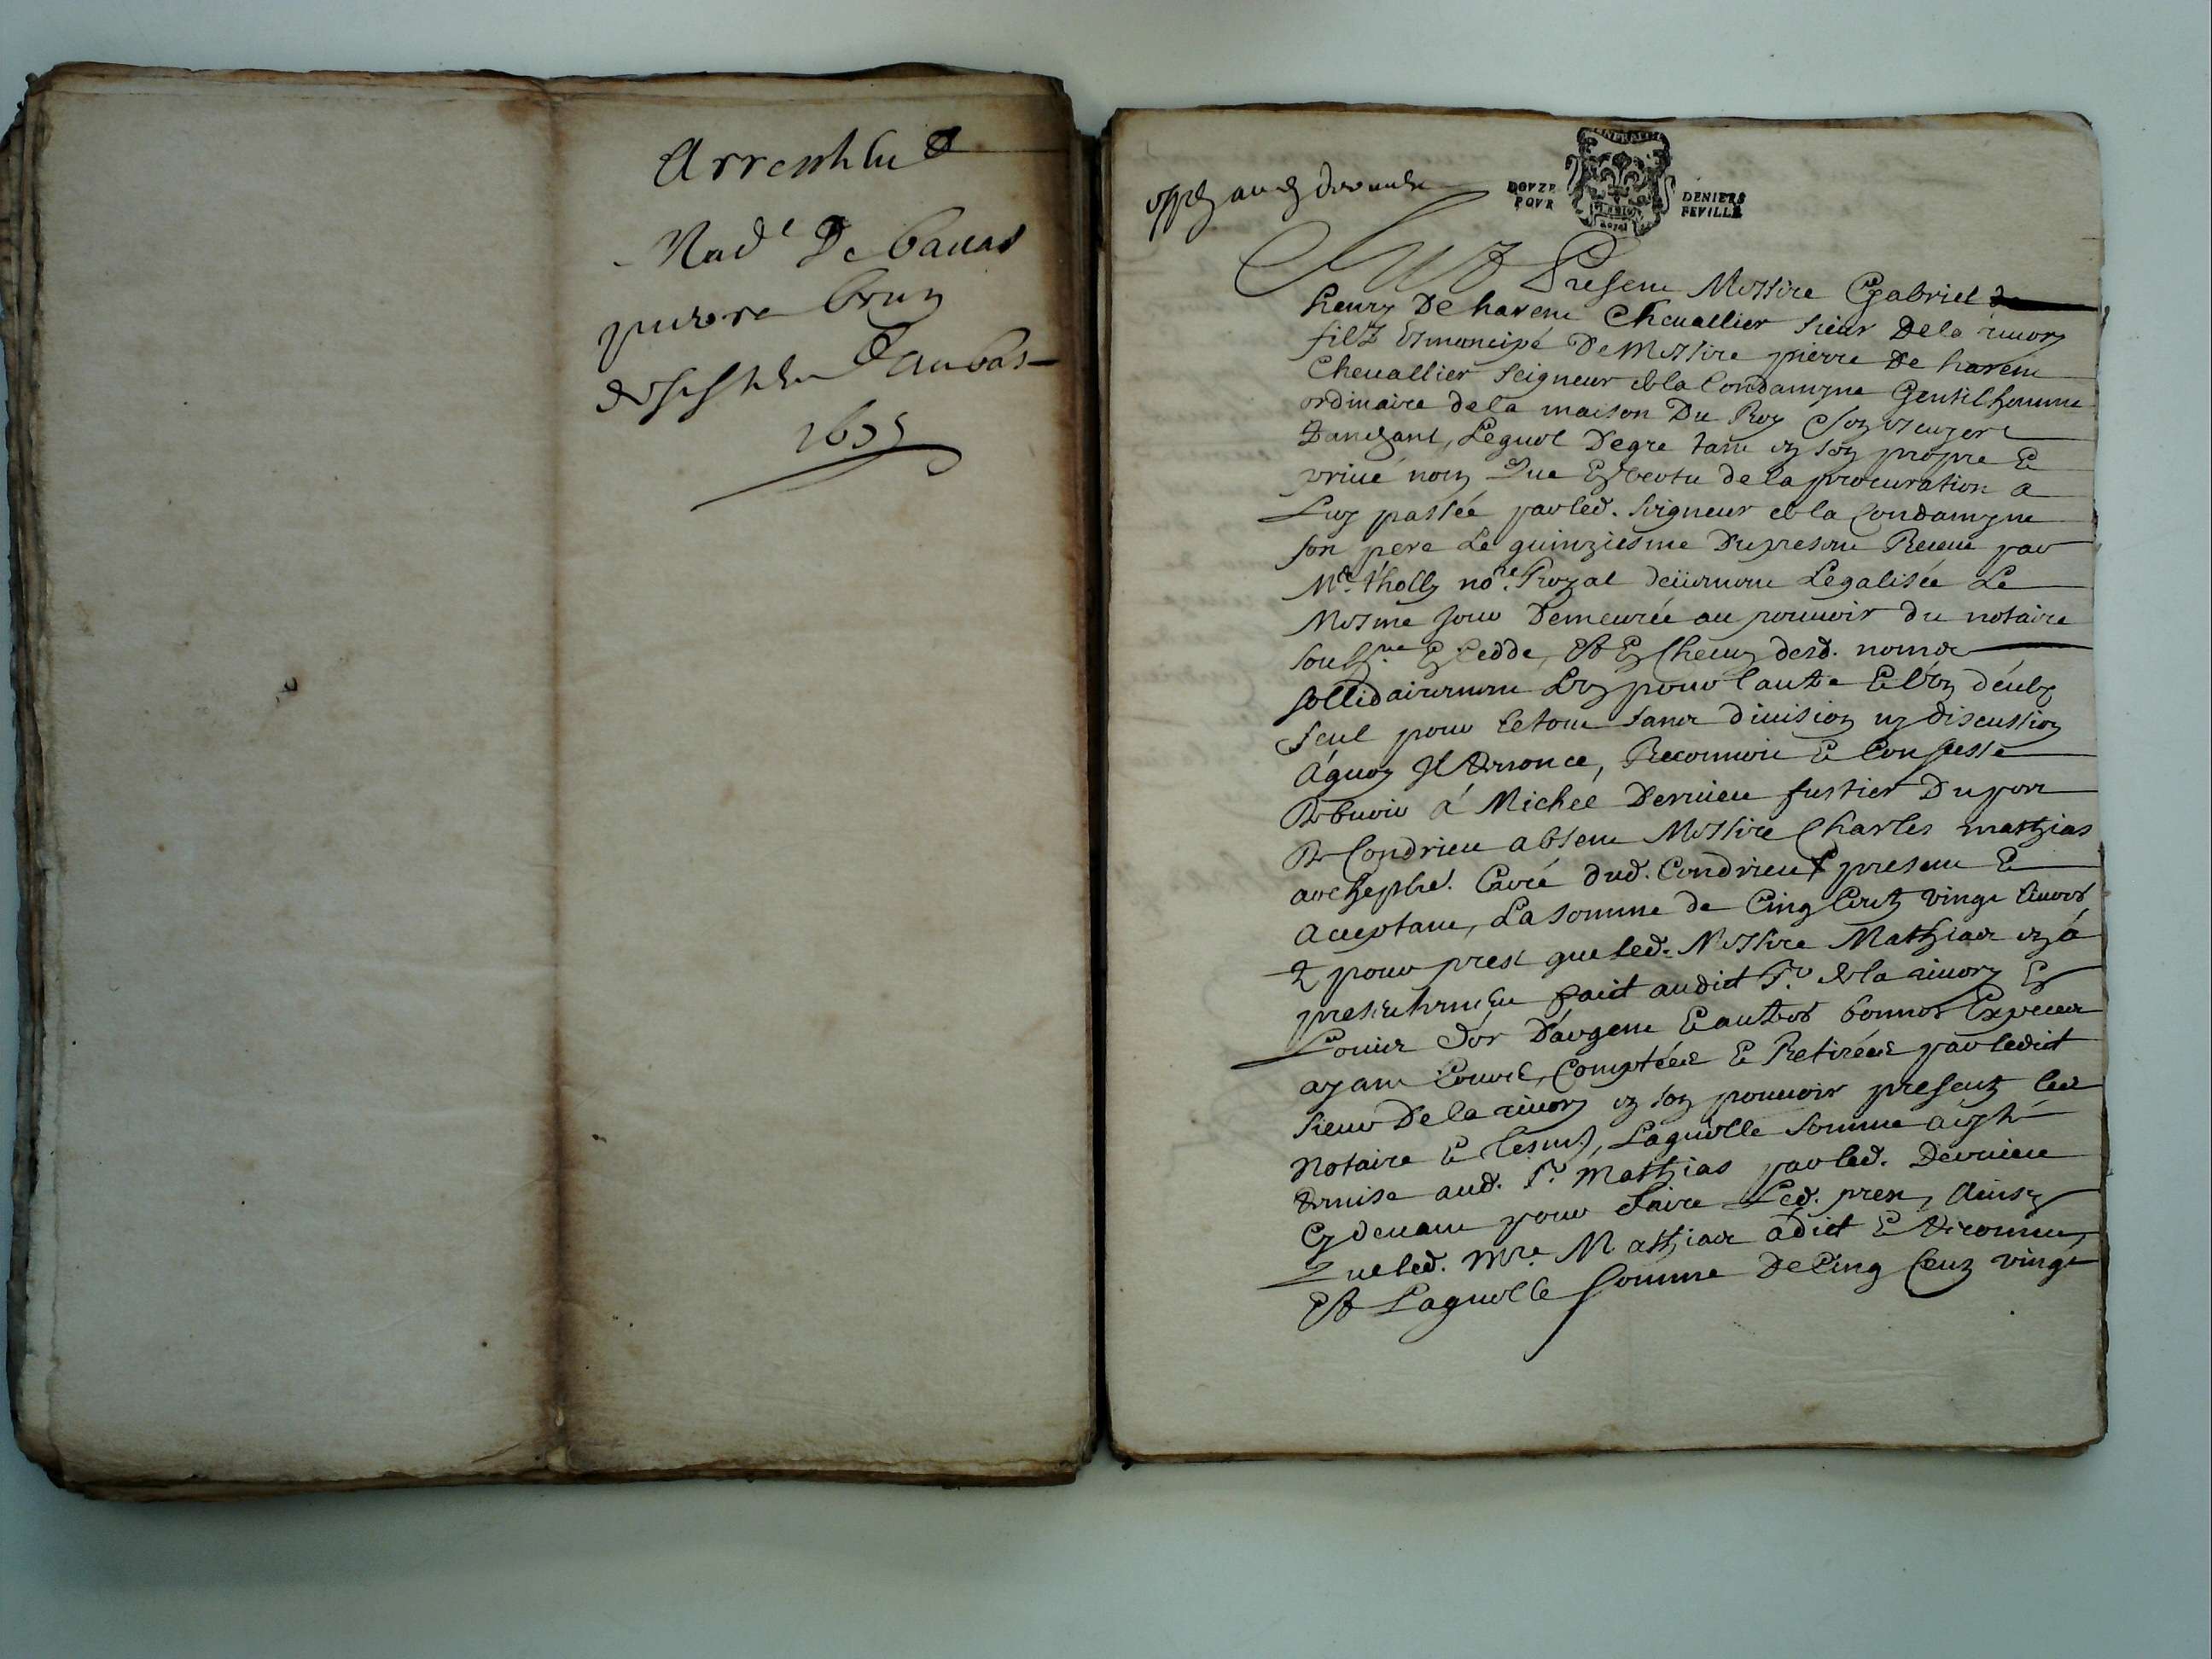 Arrentem̄
Mad.e De bauas
pierre brun
1695
DOVZE DENIERS
POVR FEVILLE
Fut Present Messire Gabriel
henry De harenc Cheuallier sieur De la riuory
filz Esmancipé De Messire pierre De harenc
Cheuallier seigneur de la Condamyne Gentilhomme
ordinaire de la maison Du Roy
Lequel De gre tant en son propre Et
priué nom Que En vertu de la procuration a
Luy passée par led. seigneur de la Condamyne
son pere Le quinziesme Du present Receue par
Me. tholly no.re Royal Legalisée Le
Mesme jour Demeurée au pouuoir du notaire
soub.ne Et Chacun desd. noms
sollidairement L'vn pour l'autre Et l'vn d'eulx
seul pour le tout sans diuision ny discussion
A quoy Il Renonce, Reconnoit Et Confesse
Debuoir à Michel Deruieu fustier Du port
De Condrieu absent Messire Charles matthias
archeptre. Curé dud. Condrieu present Et
Acceptant, La somme de Cinq Centz vingt liures
Et pour prest que led. Messire Matthias en à
presentement faict audict Sr. de la riuory En
Louis d'or D'argent Et autres bonnes Especes
ayant Cours, Comptées Et Retirées par ledict
sieur De la riuory en son pouuoir presentz les
Notaire Et tesm.s, Laquelle somme a esté
Remise aud. Sr. Matthias par led. Deruieu
Cy deuant pour faire Led. prest, Ainsy
Que led. Mre. Matthias a dict Et Reconnu,
Et Laquelle somme De Cinq Centz vingt